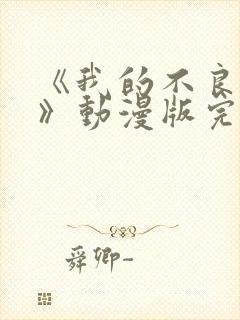 《我的不良
》動漫版完
舜卿-